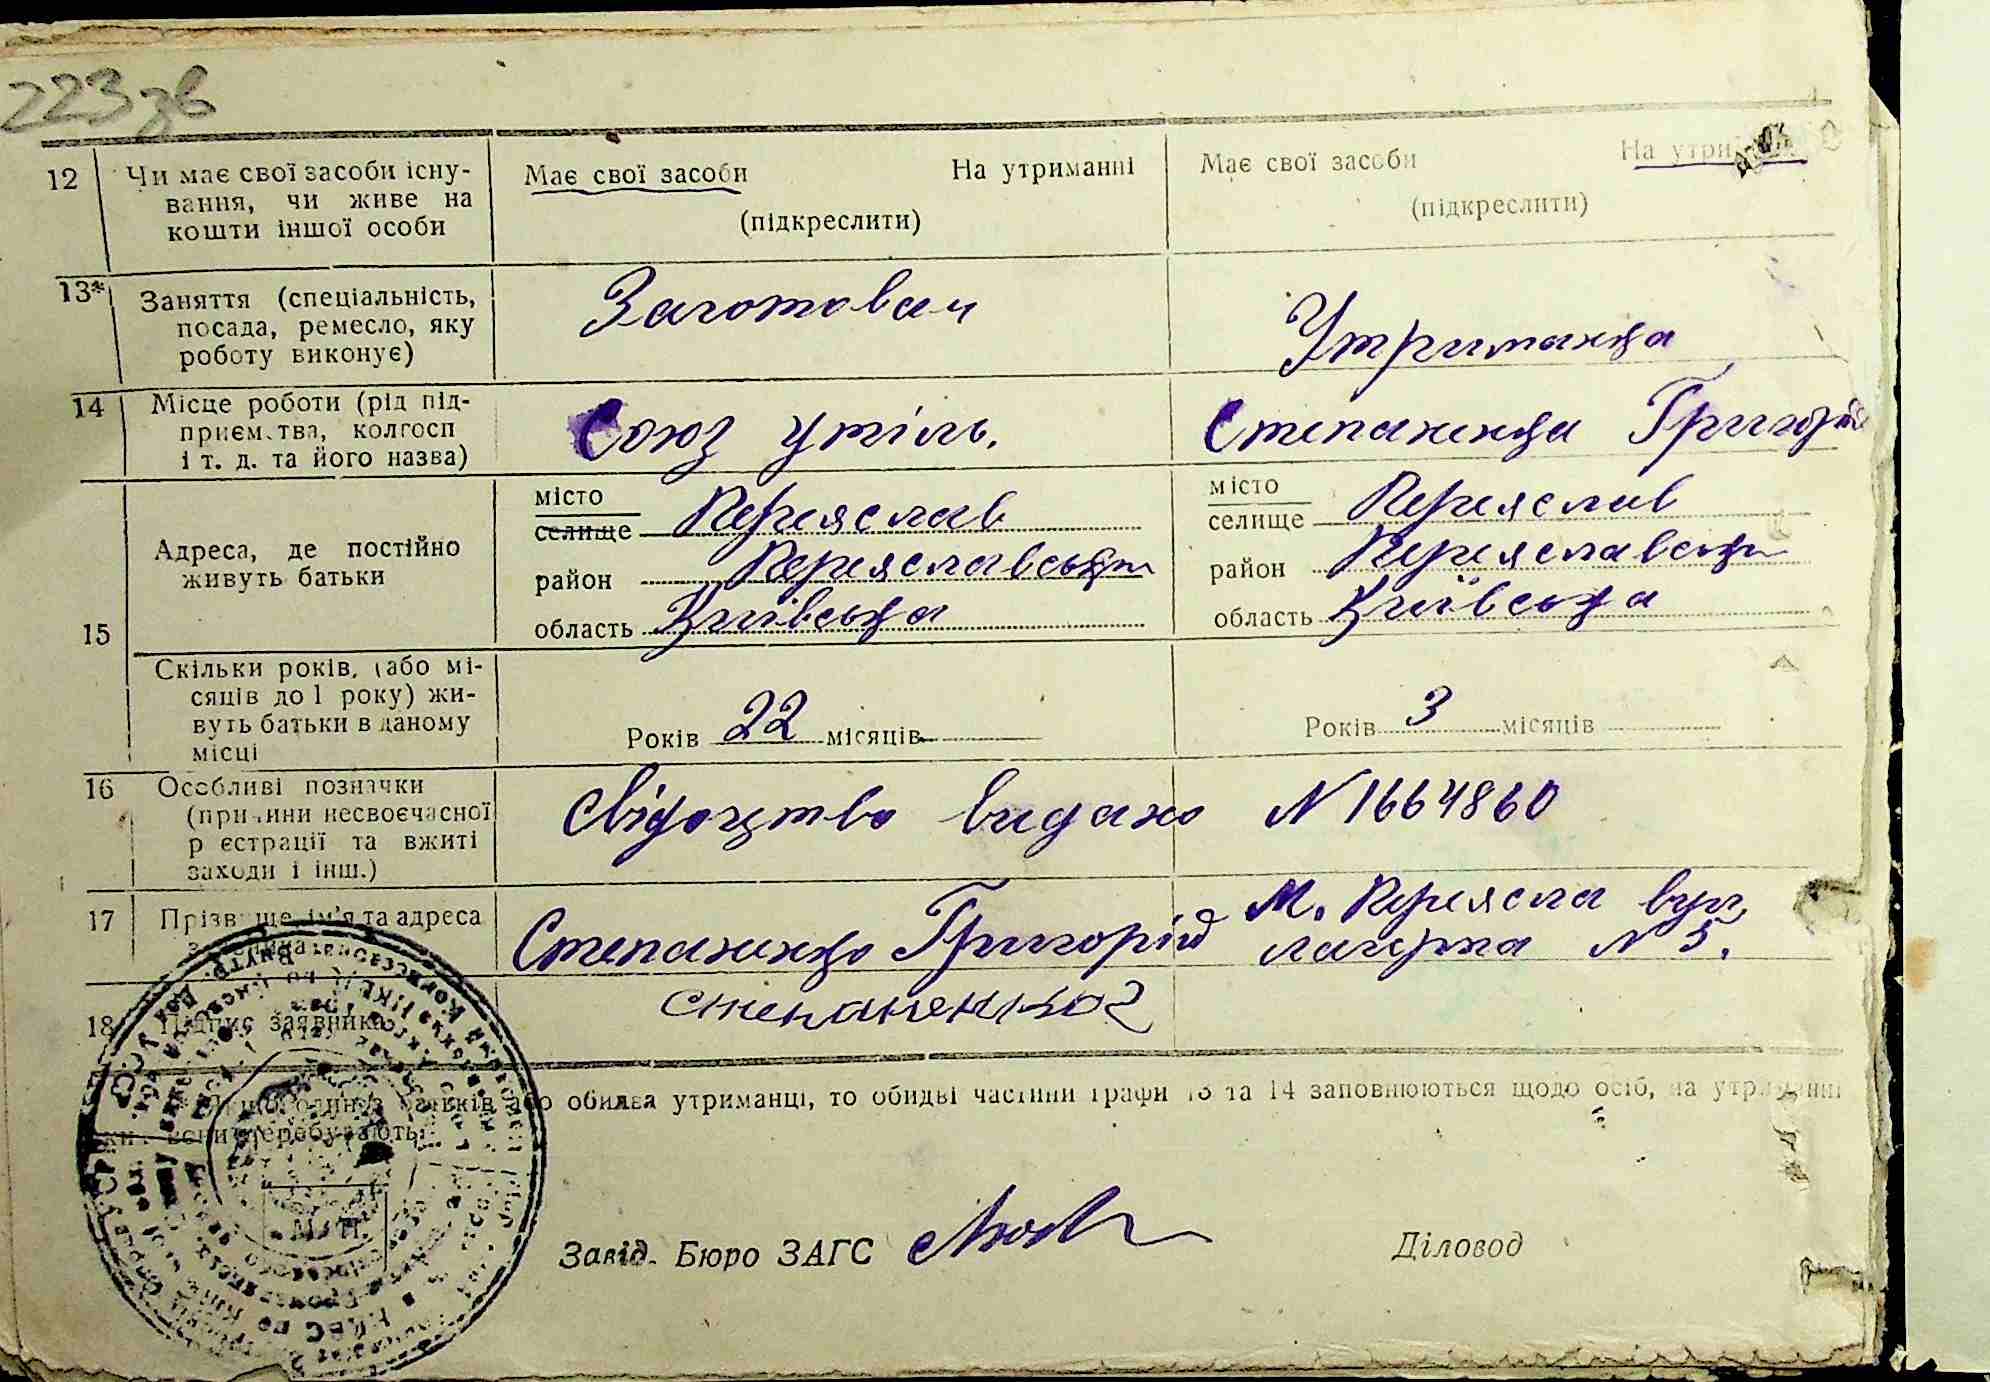 223 зв
12 Чи має свої засоби існу- Має свої засоби На утриманні Має свої засоби На утри
вання, чи живе на (підкреслити) (підкреслити)
кошти іншої особи
13* Заняття (спеціальність, Заготовач Утриманка
посада, ремесло, яку
роботу виконує)
14 Місце роботи (рід під- Союз утіль. Степаненка Григорія
приємства, колгосп
і т. д. та його назва)
15 Адреса, де постійно місто селище Переяслав місто селище Переяслав
живуть батьки район Переяславськи район Переяславськи
область Київська область Київська
Скільки років, (або мі- Років 22 місяців Років 3 місяців
сяців до 1 року) жи-
вуть батьки в даному
місці
16 Особливі позначки Свідоцтво видано N 1664860
(причини несвоєчасної
реєстрації та вжиті
заходи і інш.)
17 Прізвище, ім'я та адреса Степаненко Григорій М. Переясла вул.
заявника N 5.
18 Підпис заявника Степаненко Г
* Якщо один з батьків або обидва утриманці, то обидві частини графи 13 та 14 заповнюються щодо осіб, на утриманні
яких вони перебувають.
М. П.
Завід. Бюро ЗАГС Діловод